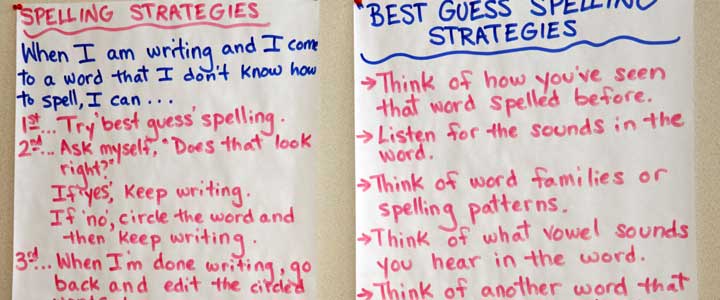 SPELLING STRATEGIES
When I am writing and I come
to a word that I don't know how
to spell, I can ...
1st... Try 'best guess' spelling.
2nd... Ask myself, "Does that look
right?"
If 'yes', keep writing.
If 'no', circle the word and
then keep writing.
3rd... When I'm done writing, go
back and edit the circled
BEST GUESS SPELLING
STRATEGIES
→Think of how you've seen
that word spelled before.
→Listen for the sounds in the
word.
→Think of word families or
spelling patterns.
→Think of what vowel sounds
you hear in the word.
→Think of another word that